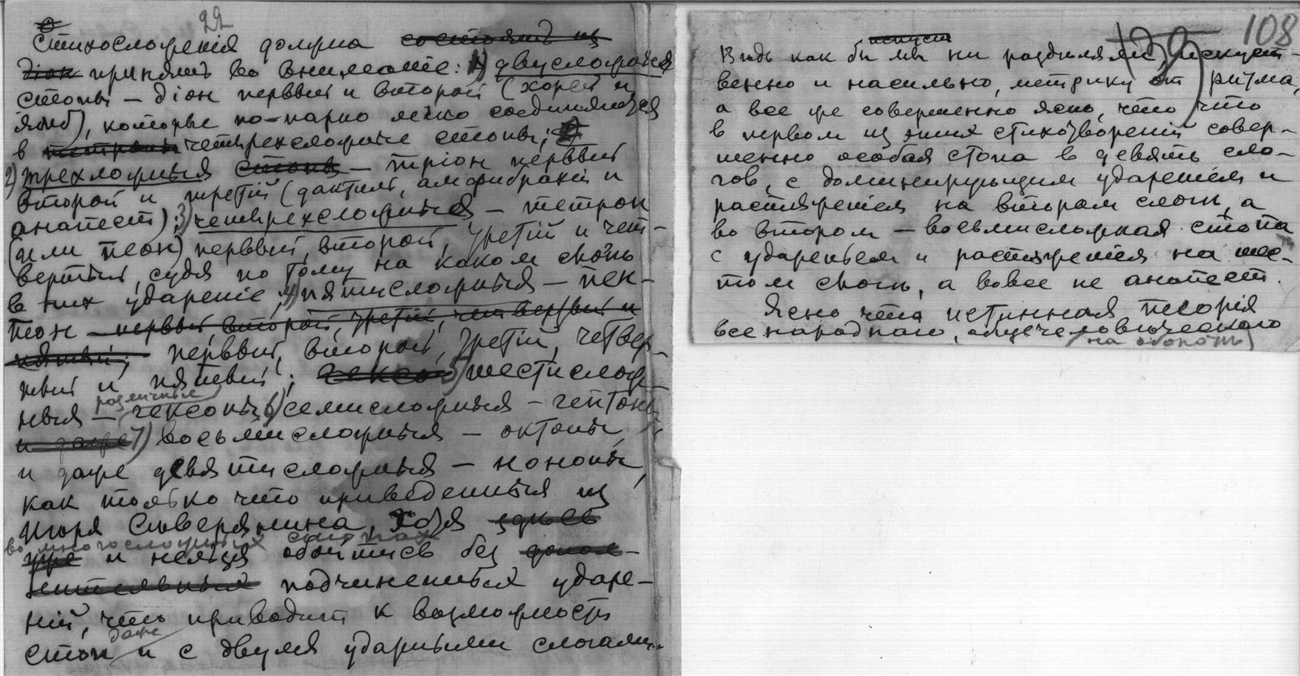 22
Стихосложенія должна состоять из
діон принять во вниманіе: 1) двусложныя
стопы — діон первый и второй (хорей и
ямб), которые по-парно легко соединяются
в четырехсложные стопы,
2) трехсложныя стопы — тріон первый
второй и третій (дактиль, амфибрахій и
анапест), 3) четырехсложныя — тетрон
(или пеон) первый, второй, третій и чет-
вертый, судя по тому на каком слоге
в них удареніе, 4) пятисложныя — пен-
теон — первый второй, третій, четвертый и
пятый, первый, второй, третій, четвер-
тый и пятый; гексон 5) шестислож-
ныя — различные гексоны 6) семисложныя — гептоны
и даже 7) восьмисложныя — октоны,
и даже девятисложныя — нононы,
как только что приведенныя из
Игоря Северянина, хотя здесь
во многосложных стопах
уже и нельзя обойтись без допол-
нительных подчиненных ударе-
ній, что приводит к возможности
даже
стоп и с двумя ударными слогами.
108
искуст
Ведь как бы мы ни раздиляли искуст-
венно и насильно, метрику от ритма,
а все же совершенно ясно, что что
в первом из этих стихотвореній совер-
шенно особая стопа в девять сло-
гов, с доминирующим удареніем и
растяженіем на втором слоге, а
во втором — восьмисложная стопа
с удареньем и растяженіем на шес-
том слоге, а вовсе не анапест.
Ясно что истинная теорія
всенароднаго, общечеловеческого
(на оборот)